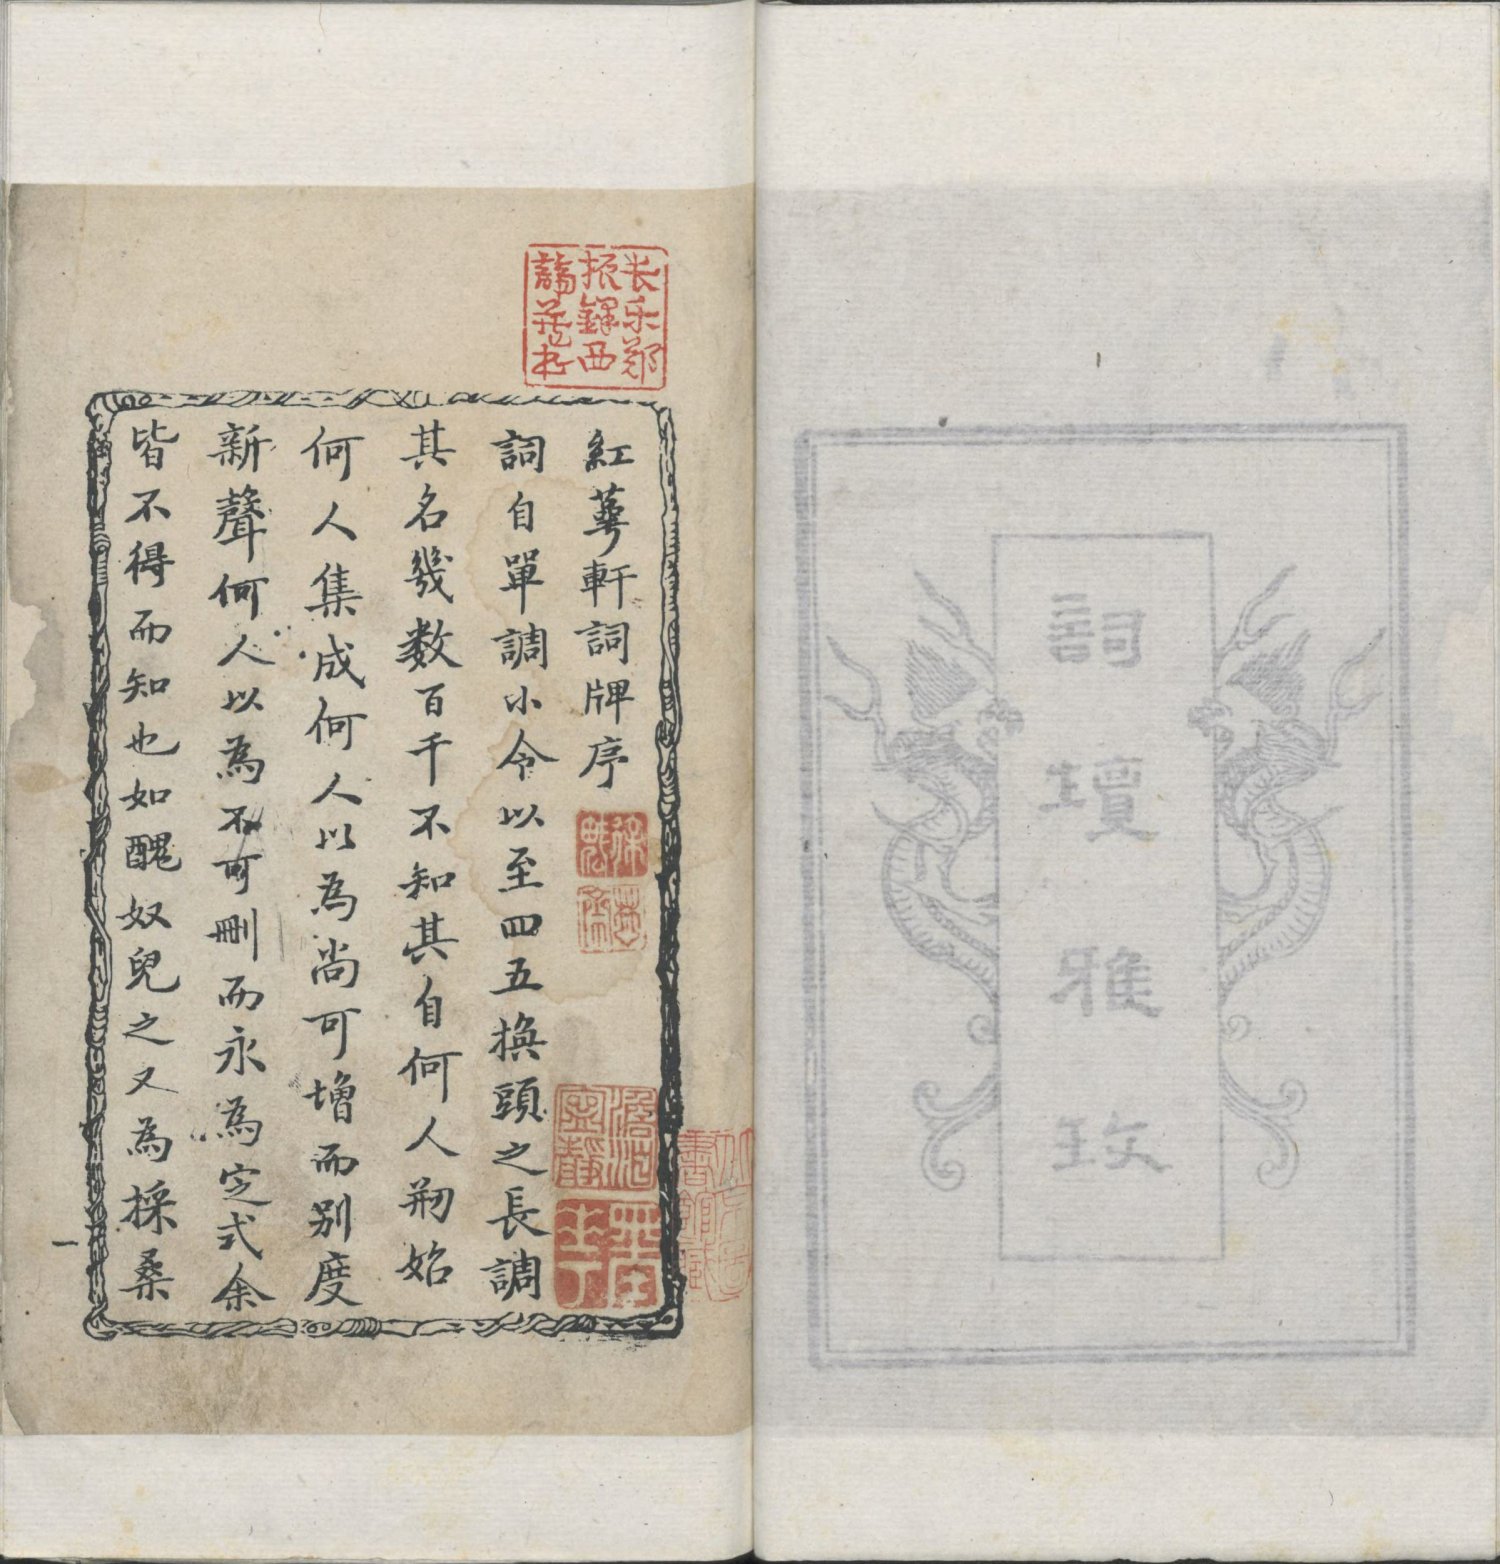 詞壇雅
长乐郑
振鐸西
諦藏书
紅萼軒詞牌序
詞自單調小令以至四五換頭之長調
其名幾数百千不知其自何人刱始
何人集成何人以為尚可增而别度
新聲何人以為不可刪而永為定式余
皆不得而知也如醜奴兒之又為採桑
澹泊
寧靜
一